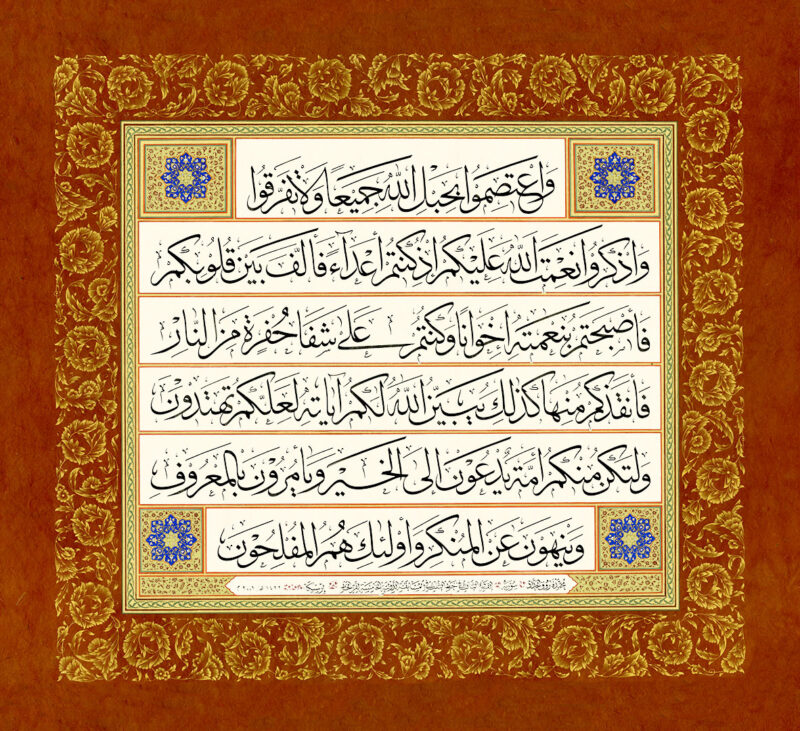 وَاعْتَصِمُوا بِحَبْلِ اللَّهِ جَمِيعًا وَلَا تَفَرَّقُوا
وَاذْكُرُوا نِعْمَتَ اللَّهِ عَلَيْكُمْ إِذْ كُنْتُمْ أَعْدَاءً فَأَلَّفَ بَيْنَ قُلُوبِكُمْ
فَأَصْبَحْتُمْ بِنِعْمَتِهِ إِخْوَانًا وَكُنْتُمْ عَلَى شَفَا حُفْرَةٍ مِنَ النَّارِ
فَأَنْقَذَكُمْ مِنْهَا كَذَلِكَ يُبَيِّنُ اللَّهُ لَكُمْ آيَاتِهِ لَعَلَّكُمْ تَهْتَدُونَ
وَلْتَكُنْ مِنْكُمْ أُمَّةٌ يَدْعُونَ إِلَى الْخَيْرِ وَيَأْمُرُونَ بِالْمَعْرُوفِ
وَيَنْهَوْنَ عَنِ الْمُنْكَرِ وَأُولَئِكَ هُمُ الْمُفْلِحُونَ